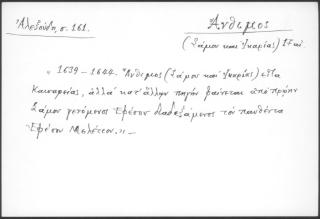 Ἀλεξούδη, σ. 161.
Ἄνθιμος
(Σάμου καὶ Ἰκαρίας) 17 αἰ.
" 1639 - 1644. Ἄνθιμος (Σάμου καὶ Ἰκαρίας) εἶτα
Καισαρείας, ἀλλὰ κατ' ἄλλην πηγὴν φαίνεται ἀπὸ πρῴην
Σάμου γενόμενος Ἐφέσου διαδεξάμενος τὸν παυθέντα
Ἐφέσου Μελέτιον. " —